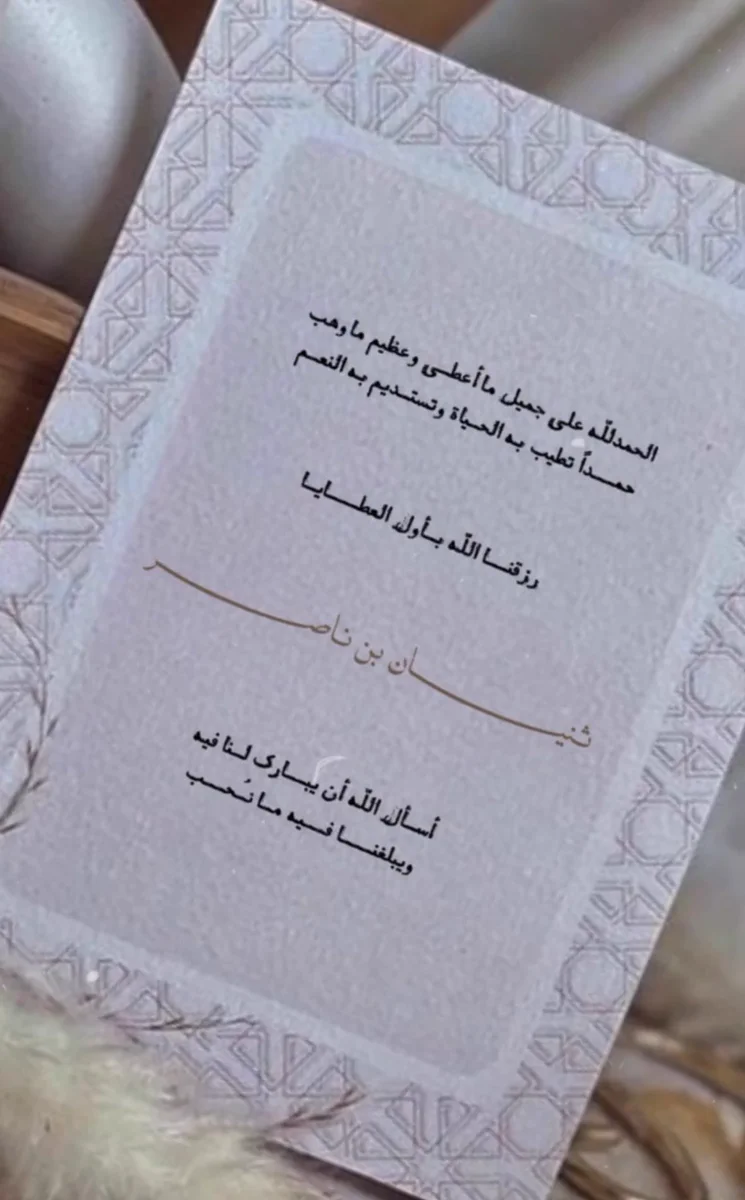 الحمدلله على جميل ما أعطى وعظيم ما وهب
حمداً تطيب به الحياة وتستديم به النعم
رزقنا الله بأول العطايا
ثنيان بن ناصر
أسأل الله أن يبارك لنا فيه
ويبلغنا فيه ما نُحب